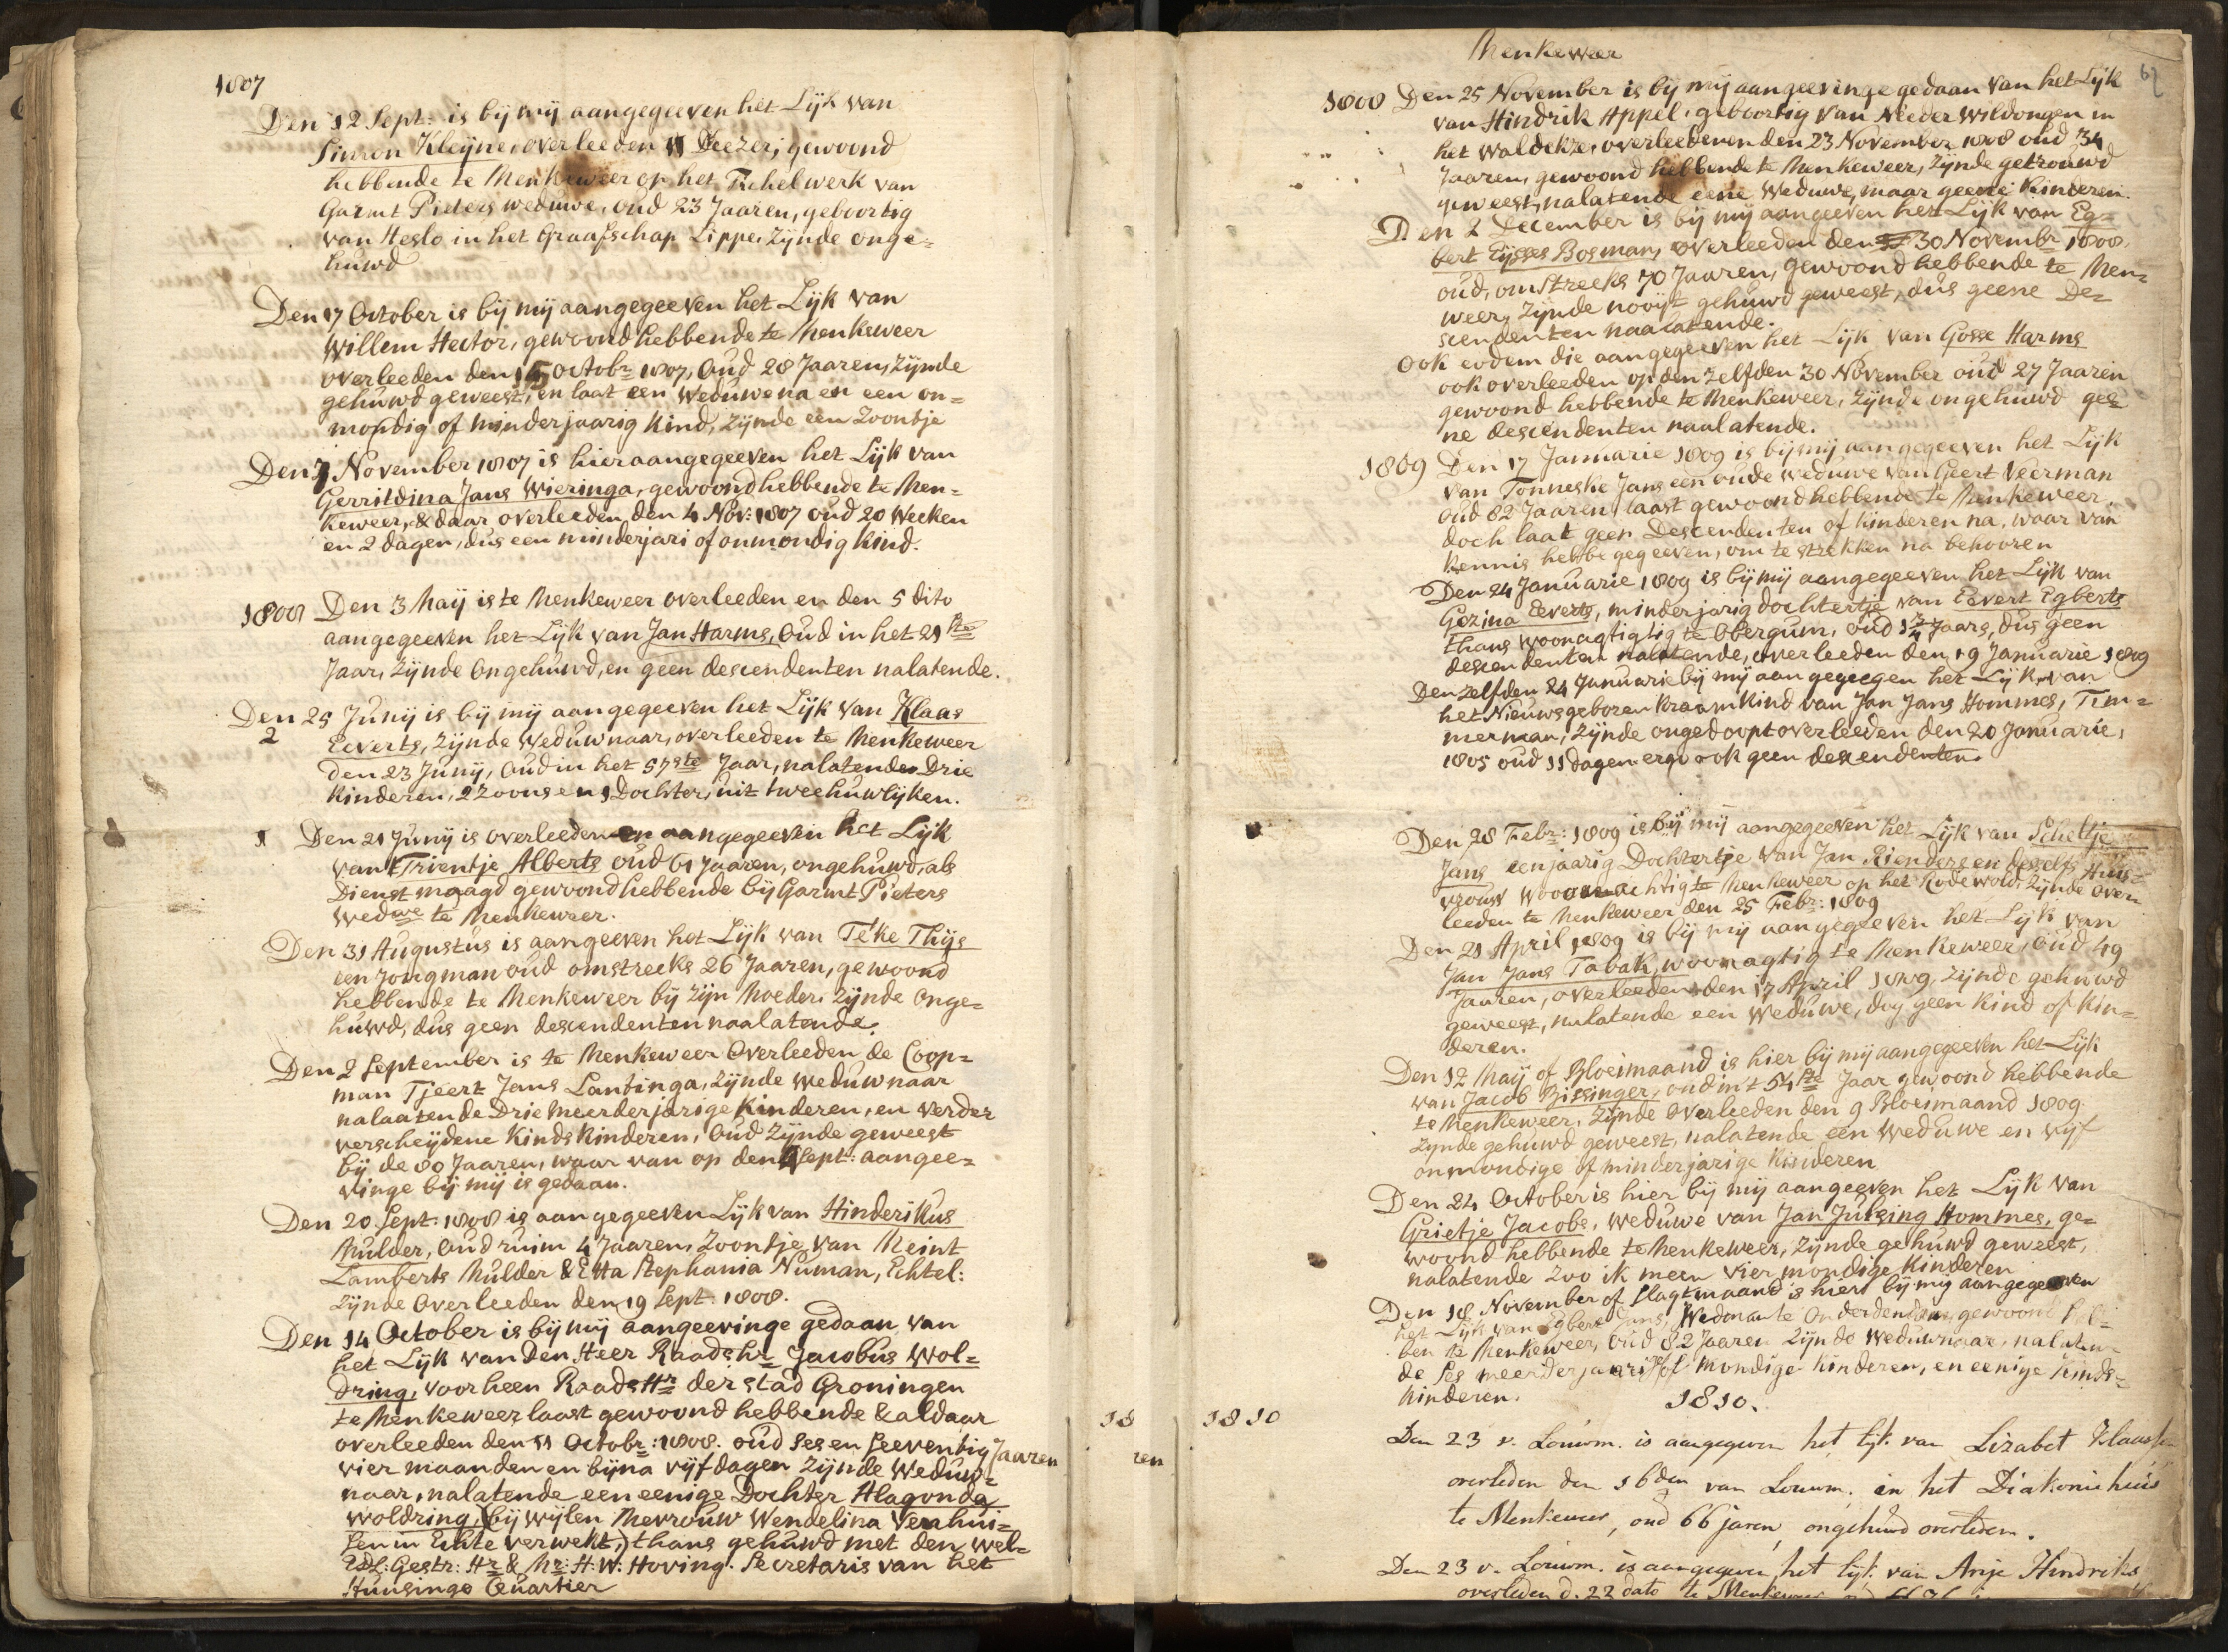 1807
Den 12 Sept: is bij mij aangegeeven het Lijk van
Simon Kleijne, overleeden 11 Deezer, gewoond
hebbende te Menkeweer op het Tichelwerk van
Garmt Pieters weduwe, oud 23 Jaaren, geboortig
van Heslo in het Graafschap Lippe, Zijnde onge=
huwd
Den 17 October is bij mij aangegeeven het Lijk van
Willem Hector, gewoond hebbende te Menkeweer
overleeden den 15 Octobr 1807, Oud 28 Jaaren, Zijnde
gehuwd geweest, en laat een Weduwe na en een on=
mondig of minderjaarig Kind, Zijnde een Zoontje
Den 7 November 1807 is hier aangegeeven het Lijk van
Gerritdina Jans Wieringa, gewoond hebbende te Men=
keweer, & daar overleeden den 4 Nov: 1807 oud 20 Weeken
en 2 dagen, dus een minderjari of onmondig kind.
1808 Den 3 Maij is te Menkeweer overleeden en den 5 dito
aangegeeven het Lijk van Jan Harms, Oud in het 21ste
Jaar, Zijnde Ongehuwd, en geen descendenten nalatende.
Den 25 Junij is bij mij aangegeeven het Lijk van Klaas
2 Eeverts, Zijnde Weduwnaar, overleeden te Menkeweer
den 23 Junij, Oud in het 57ste Jaar, nalatende Drie
Kinderen, 2 Zoons en 1 Dochter, uit twee huwlijken.
1 Den 21 Junij is overleeden en aangegeeven het Lijk
van Trientje Alberts oud 61 Jaaren, ongehuwd, als
Dienst maagd gewoond hebbende bij Garmt Pieters
Wedwe te Menkeweer.
Den 31 Augustus is aangeeven het Lijk van Teke Thijs
een Jongman oud omstreeks 26 Jaaren, gewoond
hebbende te Menkeweer bij Zijn Moeder, Zijnde Onge=
huwd, dus geen descendenten naalatende.
Den 2 September is te Menkeweer Overleeden de Coop=
man Tjeert Jans Lantinga, Zijnde Weduwnaar
nalaatende Drie Meerderjarige Kinderen, en verder
verscheijdene Kinds Kinderen, Oud Zijnde geweest
bij de 80 Jaaren, waar van op den 4 Sept: aangee=
vinge bij mij is gedaan.
Den 20 Sept. 1808 is aangegeeven Lijk van Hinderikus
Mulder, Oud ruim 4 Jaaren, Zoontje van Meint
Lamberts Mulder & Etta Stephania Numan, Echtel:
Zijnde Overleeden den 19 Sept. 1808.
Den 14 October is bij mij aangeevinge gedaan van
het Lijk van Den Heer Raadshr Jacobus Wol=
dring, Voorheen RaadsHr der stad Groningen
te Menkeweer laast gewoond hebbende & aldaar
overleeden den 11 Octobr: 1808. oud Ses en Seeventig Jaaren
vier maanden en bijna vijf dagen Zijnde Weduw=
naar, nalatende een eenige Dochter Alagonda
Woldring, (bij wijlen Mevrouw Wendelina Verhui=
sen in Echte verwekt,) thans gehuwd met den Wel=
Edl: Gestr: Hr & Mr: H: W: Hoving. Secretaris van het
Hunsingo Quartier
18
ren
1810
Menkeweer
67
1808 Den 25 November is bij mij aangeevinge gedaan van het Lijk
van Hindrik Appel, geboortig van Nieder Wildongen in
het Waldekze, overleedenen den 23 November 1808 oud 34
Jaaren, gewoond hebbende te Menkeweer, Zijnde getrouwd
geweest, nalatende eene Weduwe, maar geene Kinderen.
Den 2 December is bij mij aangeeven het Lijk van Eg=
bert Eijsses Bosman, overleeden den 30 Novembr 1808.
oud, omstreeks 70 Jaaren, gewoond hebbende te Men=
weer, Zijnde nooijt gehuwd geweest, dus geene De=
scendenten naalatende.
Ook eodem die aangegeeven het Lijk van Gosse Harms
ook overleeden op den Zelfden 30 November oud 27 Jaaren
gewoond hebbende te Menkeweer, Zijnde ongehuwd gee=
ne descendenten naalatende.
1809 Den 17 Januarie 1809 is bij mij aangegeeven het Lijk
van Tonneske Jans een oude weduwe van Geert Veerman
oud 82 Jaaren, laast gewoond hebbende te Menkeweer,
doch laat geen Descendenten of Kinderen na, waar van
Kennis hebbe gegeeven, om te strekken na behooren
Den 24 Januarie 1809 is bij mij aangegeeven het Lijk van
Gezina Eeverts, minderjarig dochtertje van Eevert Egberts
thans woonagtigtig te Obergum, oud 1 3/4 Jaars, dus geen
descendenten nalatende, overleeden den 19 Januarie 1809
Den zelfden 24 Januarie bij mij aangegeegen het Lijk van
het Nieuwsgeboren Kraam Kind van Jan Jans Hommes, Tim=
merman, Zijnde ongedoopt overleeden den 20 Januarie,
1805 oud 11 dagen ergo ook geen descendenten.
Den 28 Febr: 1809 is bij mij aangegeeven het Lijk van Scheltje
Jans eenjaarig Dochtertje van Jan Rienders en deszelfs Huis=
vrouw Woonachtig te Menkeweer op het Rodewold, Zijnde over
leeden te Menkeweer den 25 Febr: 1809
Den 21 April 1809 is bij mij aangegeeven het Lijk van
Jan Jans Tabak, woonagtig te Menkeweer, Oud 49
Jaaren, overleeden den 17 April 1809, Zijnde gehuwd
geweest, nalatende een Weduwe, dog geen Kind of Kin=
deren.
Den 12 Maij of Bloeimaand is hier bij mij aangegeeven het Lijk
van Jacob Bissinger, oud in 't 54ste Jaar gewoond hebbende
te Menkeweer, Zijnde Overleeden den 9 Bloeimaand 1809.
Zijnde gehuwd geweest, nalatende een Weduwe en vijf
onmondige of minderjarige Kinderen
Den 24 October is hier bij mij aangeeven het Lijk van
Grietje Jacobs, Weduwe van Jan Jursing Hommes, ge=
woond hebbende te Menkeweer, Zijnde gehuwd geweest,
nalatende Zoo ik meen vier mondige Kinderen
Den 18 November of Slagtmaand is hier bij mij aangegeeven
het Lijk van Egbert Jans, Wedman te Onderdendam, gewoond heb=
ben te Menkeweer, Oud 82 Jaaren Zijnde Weduwnaar, nalaten=
de Ses meerderjaarige of Mondige Kinderen, en eenige Kinds=
Kinderen.
1810.
Den 23 v. Louwm. is aangegeven het lijk van Lizabet Klaassen
overleden den 16den van Louwm. in het Diakoniehuis
te Menkeweer, oud 66 jaren, ongehuwd overleden.
Den 23 v. Louwm. is aangegeven het lijk van Anje Hindriks
overleden d. 22 dato te Menkeweer